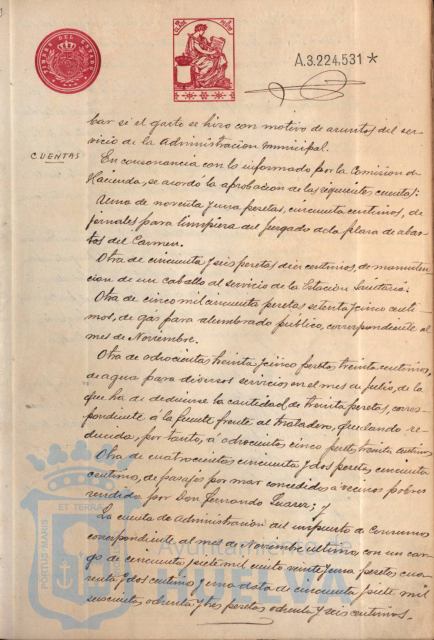 A.3.224,531 *
bar si el gasto se hizo con motivo de asuntos del ser-
vicio de la Administracion municipal.
CUENTAS
En consonancia con lo informado por la Comision de
Hacienda, se acordó la aprobacion de las siguientes cuentas:
Una de noventa y una pesetas, cincuenta centimos, de
jornales para limpieza del juzgado de la plaza de abas-
tos del Carmen.
Otra de cincuenta y seis pesetas diez centimos, de manuten-
cion de un caballo al servicio de la Estacion Sanitaria.
Otra de cinco mil cincuenta pesetas setenta y cinco centi-
mos, de gas para alumbrado público, correspondiente al
mes de Noviembre.
Otra de ochocientas treinta y cinco pesetas treinta centimos,
de agua para diversos servicios en el mes de Julio, de la
que ha de deducirse la cantidad de treinta pesetas, corres-
pondiente á la fuente frente al Matadero, quedando re-
ducida, por tanto, á ochocientas cinco pesetas treinta centimos
Otra de cuatrocientas cincuenta y dos pesetas cincuenta
centimos, de pasajes por mar concedidos á vecinos pobres
rendida por Don Fernando Suarez; y
La cuenta de Administracion del impuesto de Consumos
correspondiente al mes de Noviembre último, con un car-
go de cincuenta y siete mil ciento veinte y una pesetas cua-
renta y dos centimos y una data de cincuenta y siete mil
seiscientas ochenta y tres pesetas ochenta y seis centimos.
PORTUS MARIS
ET TERRÆ
Ayuntamiento de
HUELVA